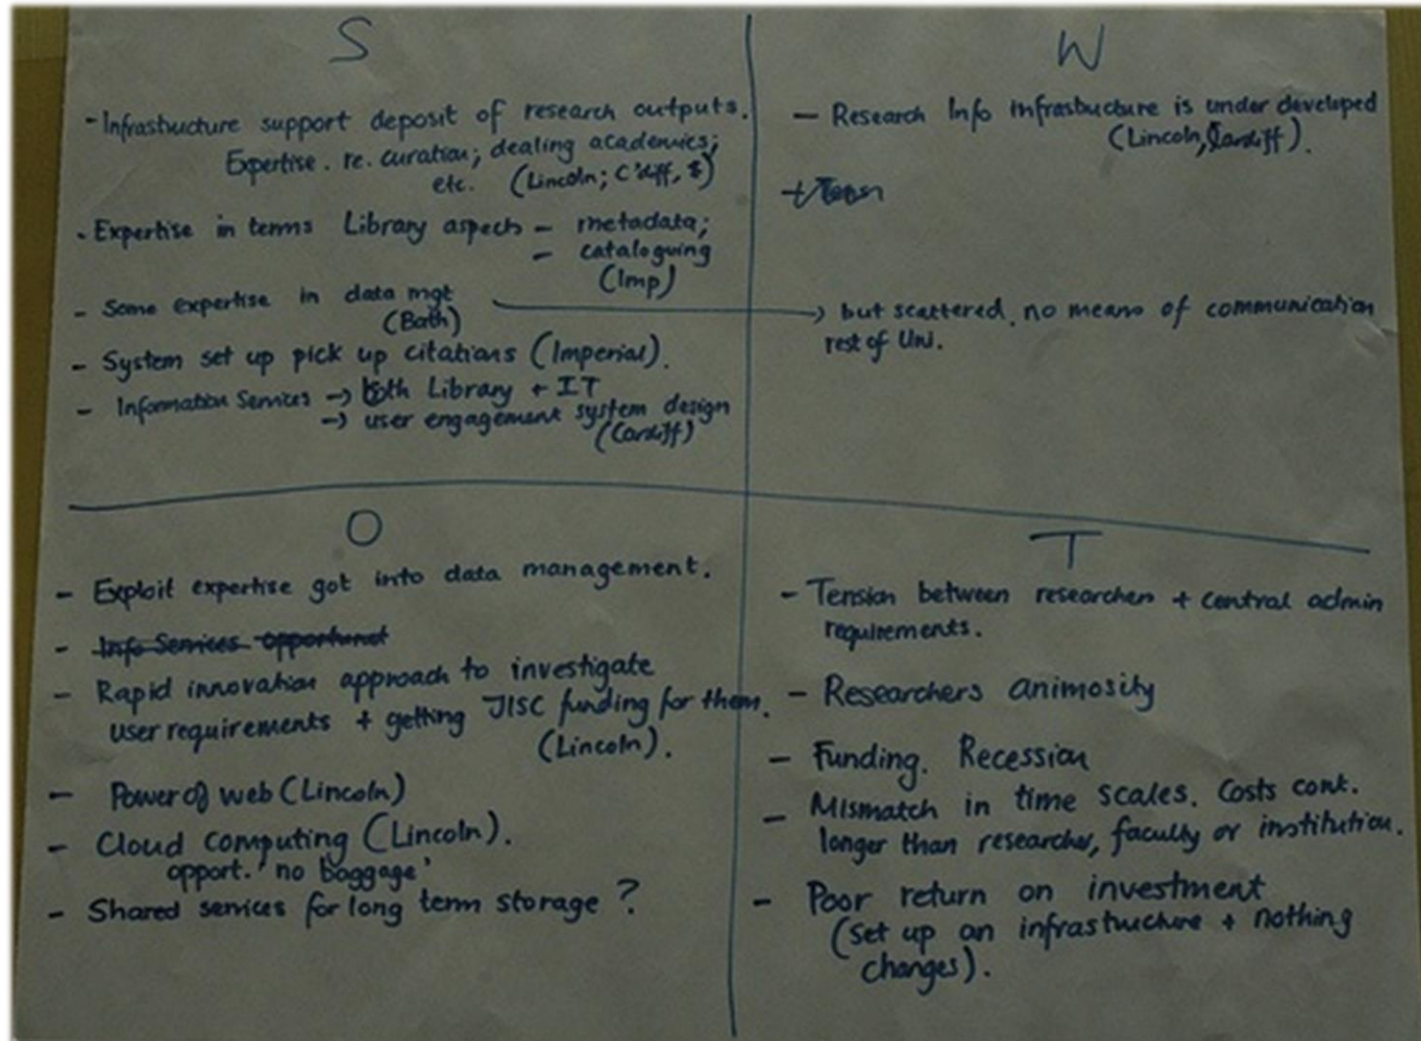 S
- Infrastructure support deposit of research outputs.
Expertise. re. curation; dealing academics;
etc. (Lincoln; C'diff,
- Expertise in terms Library aspects - metadata;
- cataloguing
(Imp)
- Some expertise in data mgt
(Bath)
- System set up pick up citations (Imperial).
- Information Services → both Library + IT
→ user engagement system design
(Cardiff)
W
- Research Info infrastructure is under developed
(Lincoln, Cardiff).
→ but scattered. no means of communication
rest of Uni.
O
- Exploit expertise got into data management.
- Info Services opportunit
- Rapid innovation approach to investigate
user requirements + getting JISC funding for them.
(Lincoln).
- Power of web (Lincoln)
- Cloud computing (Lincoln).
opport. 'no baggage'
- Shared services for long term storage ?
T
- Tension between researchers + central admin
requirements.
- Researchers animosity
- Funding. Recession
- Mismatch in time scales. Costs cont.
longer than researcher, faculty or institution.
- Poor return on investment
(set up an infrastructure + nothing
changes).